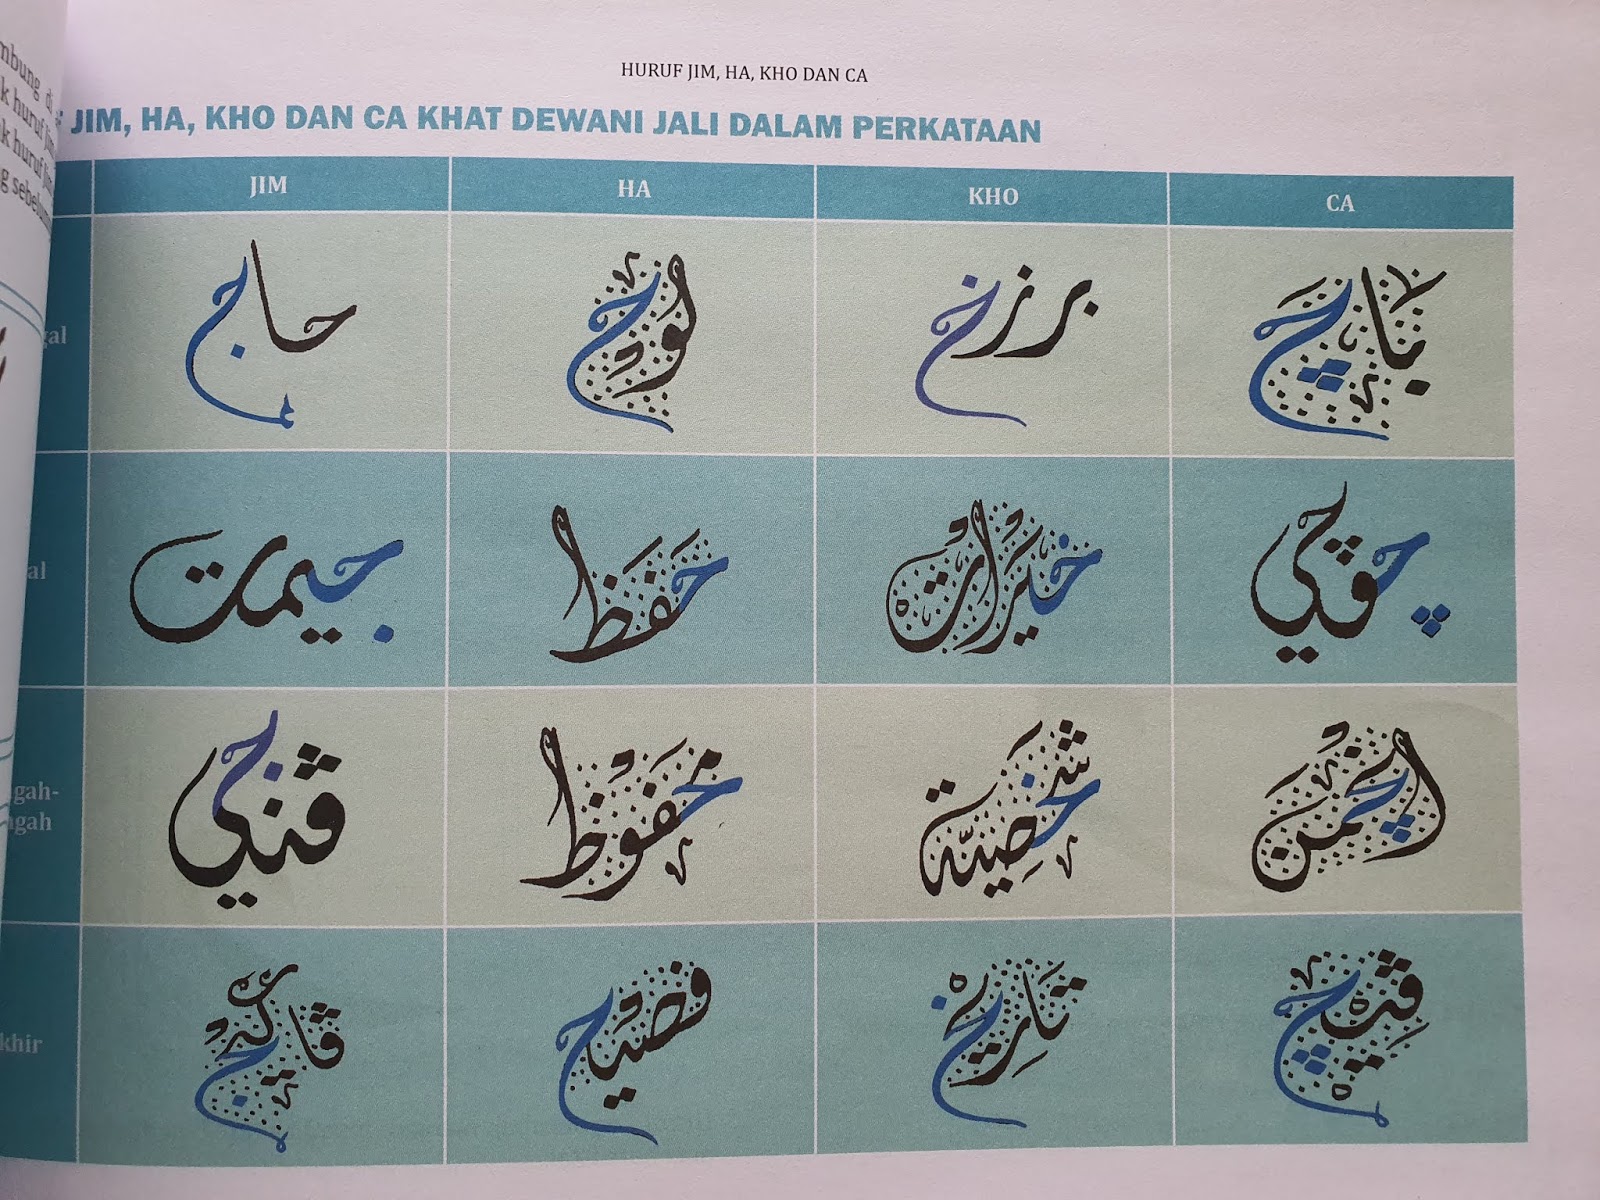 mbung di
k huruf Jim
k huruf Jim
g sebelum
HURUF JIM, HA, KHO DAN CA
JIM, HA, KHO DAN CA KHAT DEWANI JALI DALAM PERKATAAN
JIM HA KHO CA
gal حاج لوح برزخ باچ
al جيمت حفظ خيرات چوچي
gah-
ngah ڤنجي محفوظ شخصية
khir ڤاکيج فصيح تاريخ ڤيچ